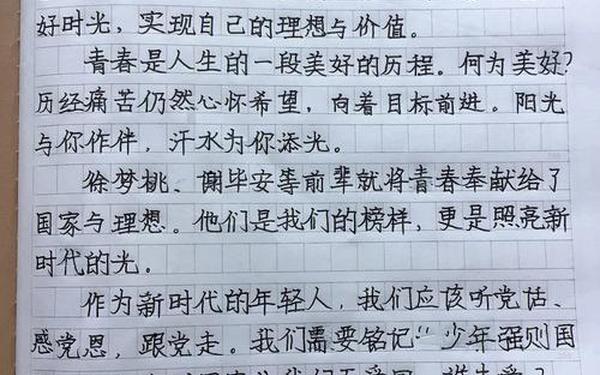 好时光，实现自己的理想与价值。
青春是人生的一段美好的历程。何为美好？
历经痛苦仍然心怀希望，向着目标前进。阳光
与你作伴，汗水为你添光。
徐梦桃、谢毕安等前辈就将青春奉献给了
国家与理想。他们是我们的榜样，更是照亮新
时代的光。
作为新时代的年轻人，我们应该听党话、
感党恩，跟党走。我们需要铭记“少年强则国